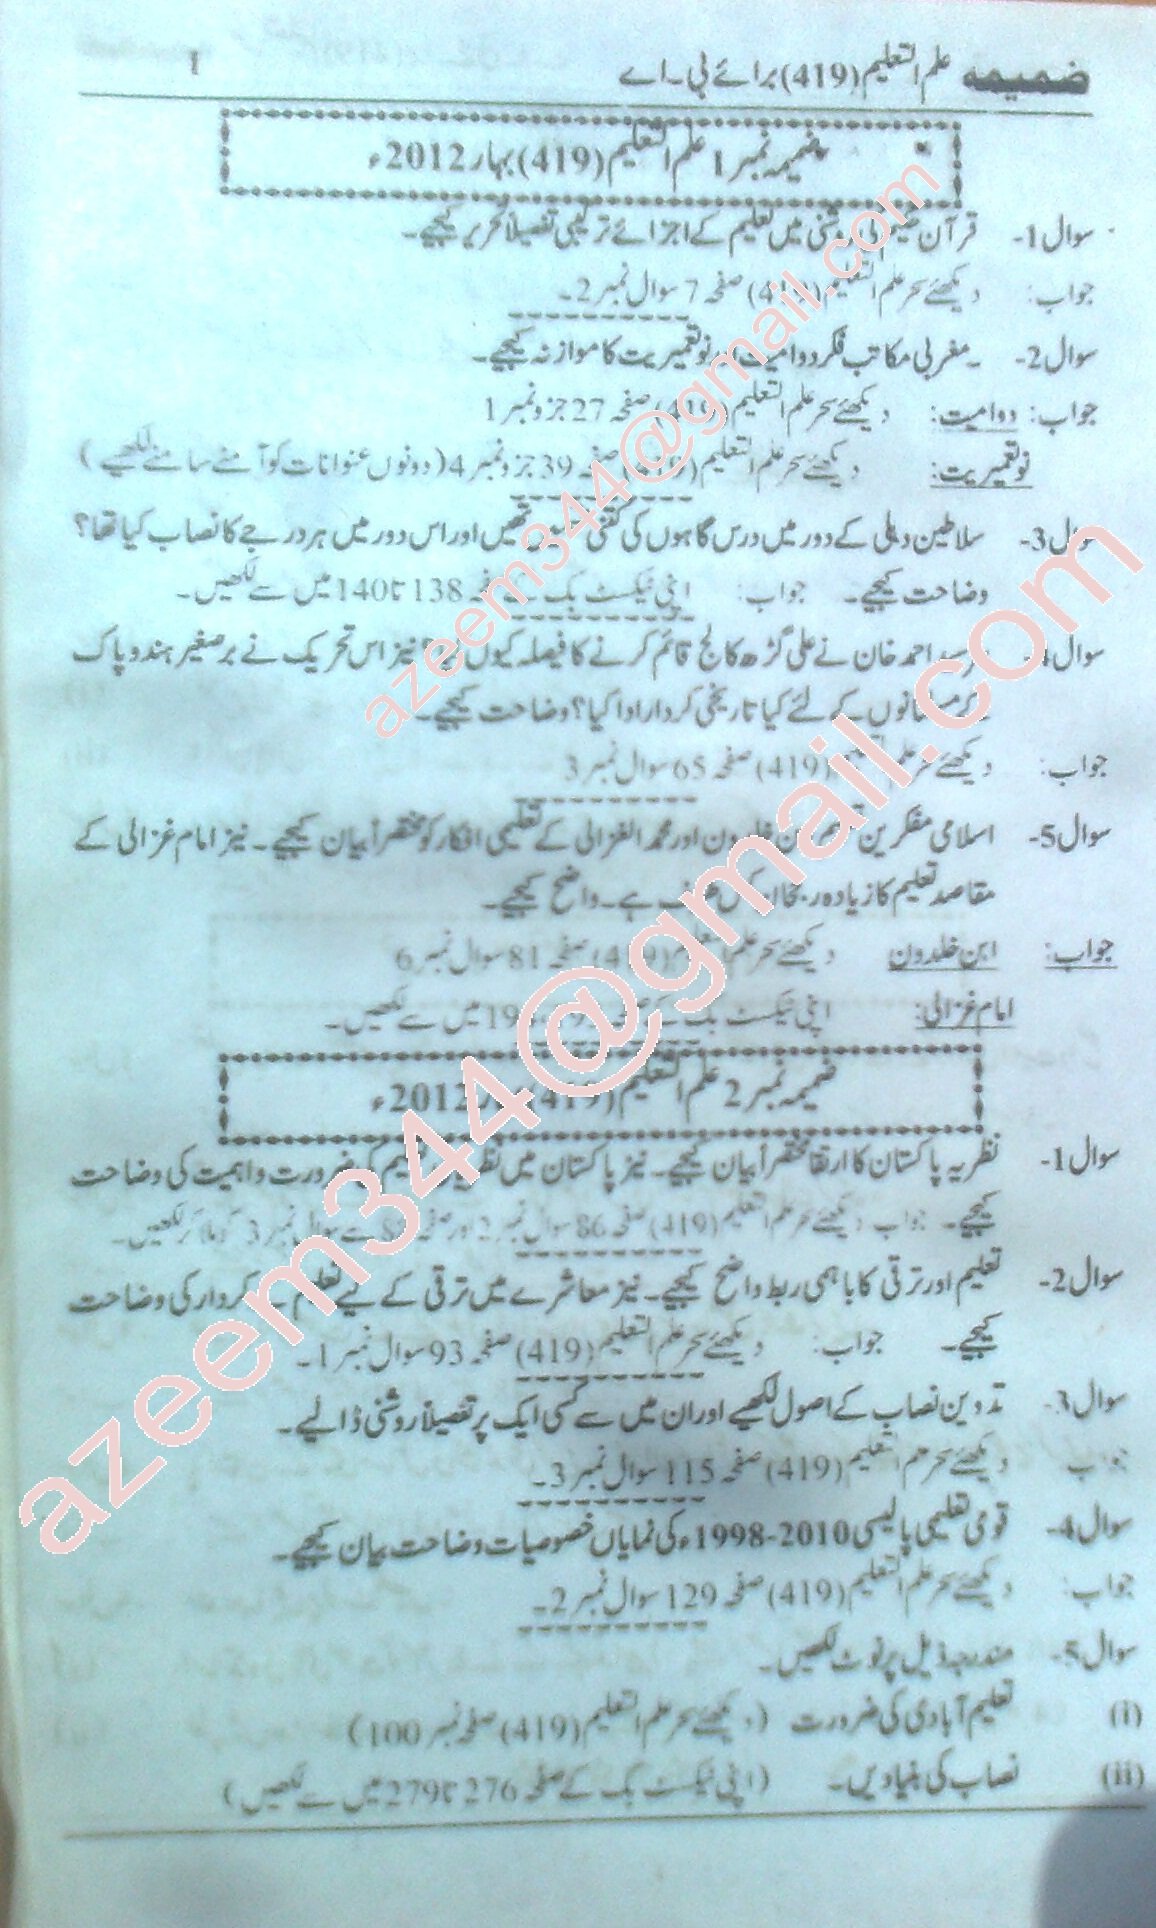 ضمیمہ علم التعلیم (419) برائے بی۔اے 1
ضمیمہ نمبر 1 علم التعلیم (419) بہار 2012ء
سوال 1- قرآن روشنی میں تعلیم کے اجزائے ترکیبی تفصیلاً تحریر کیجیے۔
جواب: دیکھئے سحر علم التعلیم (419) صفحہ 7 سوال نمبر 2۔
سوال 2- ۔ مغربی مکاتب فکر دوامیت اور نو تعمیریت کا موازنہ کیجیے۔
جواب: دوامیت: دیکھئے سحر علم التعلیم (419) صفحہ 27 جزو نمبر 1
نو تعمیریت: دیکھئے سحر علم التعلیم (419) صفحہ 39 جزو نمبر 4 (دونوں عنوانات کو آمنے سامنے لکھیے)
سوال 3- سلاطین دہلی کے دور میں درس گاہوں کی کتنی تھیں اور اس دور میں ہر درجے کا نصاب کیا تھا؟
وضاحت کیجیے۔ جواب: اپنی ٹیکسٹ بک کے صفحہ 138 تا 140 میں سے لکھیں۔
سوال 4- سرسید احمد خان نے علی گڑھ کالج قائم کرنے کا فیصلہ کیوں کیا نیز اس تحریک نے برصغیر ہندو پاک
کے مسلمانوں کے لئے کیا تاریخی کردار ادا کیا؟ وضاحت کیجیے۔
جواب: دیکھئے سحر علم التعلیم (419) صفحہ 65 سوال نمبر 3
سوال 5- اسلامی مفکرین ابن خلدون اور محمد الغزالی کے تعلیمی افکار کو مختصراً بیان کیجیے۔ نیز امام غزالی کے
مقاصد تعلیم کا زیادہ رجحان کس طرف ہے۔ واضح کیجیے۔
جواب: ابن خلدون دیکھئے سحر علم التعلیم (419) صفحہ 81 سوال نمبر 6
امام غزالی: اپنی ٹیکسٹ بک کے صفحہ میں سے لکھیں۔
ضمیمہ نمبر 2 علم التعلیم (419) بہار 2012ء
سوال 1- نظریہ پاکستان کا ارتقا مختصراً بیان کیجیے۔ نیز پاکستان میں تعلیم کی ضرورت و اہمیت کی وضاحت
کیجیے۔ جواب دیکھئے سحر علم التعلیم (419) صفحہ 86 سوال نمبر 2 اور صفحہ سے سوال نمبر 3 کو ملا کر لکھیں۔
سوال 2- تعلیم اور ترقی کا باہمی ربط واضح کیجیے۔ نیز معاشرے میں ترقی کے لیے تعلیم کے کردار کی وضاحت
کیجیے۔ جواب: دیکھئے سحر علم التعلیم (419) صفحہ 93 سوال نمبر 1۔
سوال 3- تدوین نصاب کے اصول لکھیے اور ان میں سے کسی ایک پر تفصیلاً روشنی ڈالیے۔
جواب دیکھئے سحر علم التعلیم (419) صفحہ 115 سوال نمبر 3۔
سوال 4- قومی تعلیمی پالیسی 2010-1998ء کی نمایاں خصوصیات وضاحت بیان کیجیے۔
جواب: دیکھئے سحر علم التعلیم (419) صفحہ 129 سوال نمبر 2۔
سوال 5- مندرجہ ذیل پر نوٹ لکھیں۔
(i) تعلیم آبادی کی ضرورت (دیکھئے سحر علم التعلیم (419) صفحہ نمبر 100)
(ii) نصاب کی بنیادیں۔ (اپنی ٹیکسٹ بک کے صفحہ 276 تا 279 میں سے لکھیں)
azeem344@gmail.com
azeem344@gmail.com